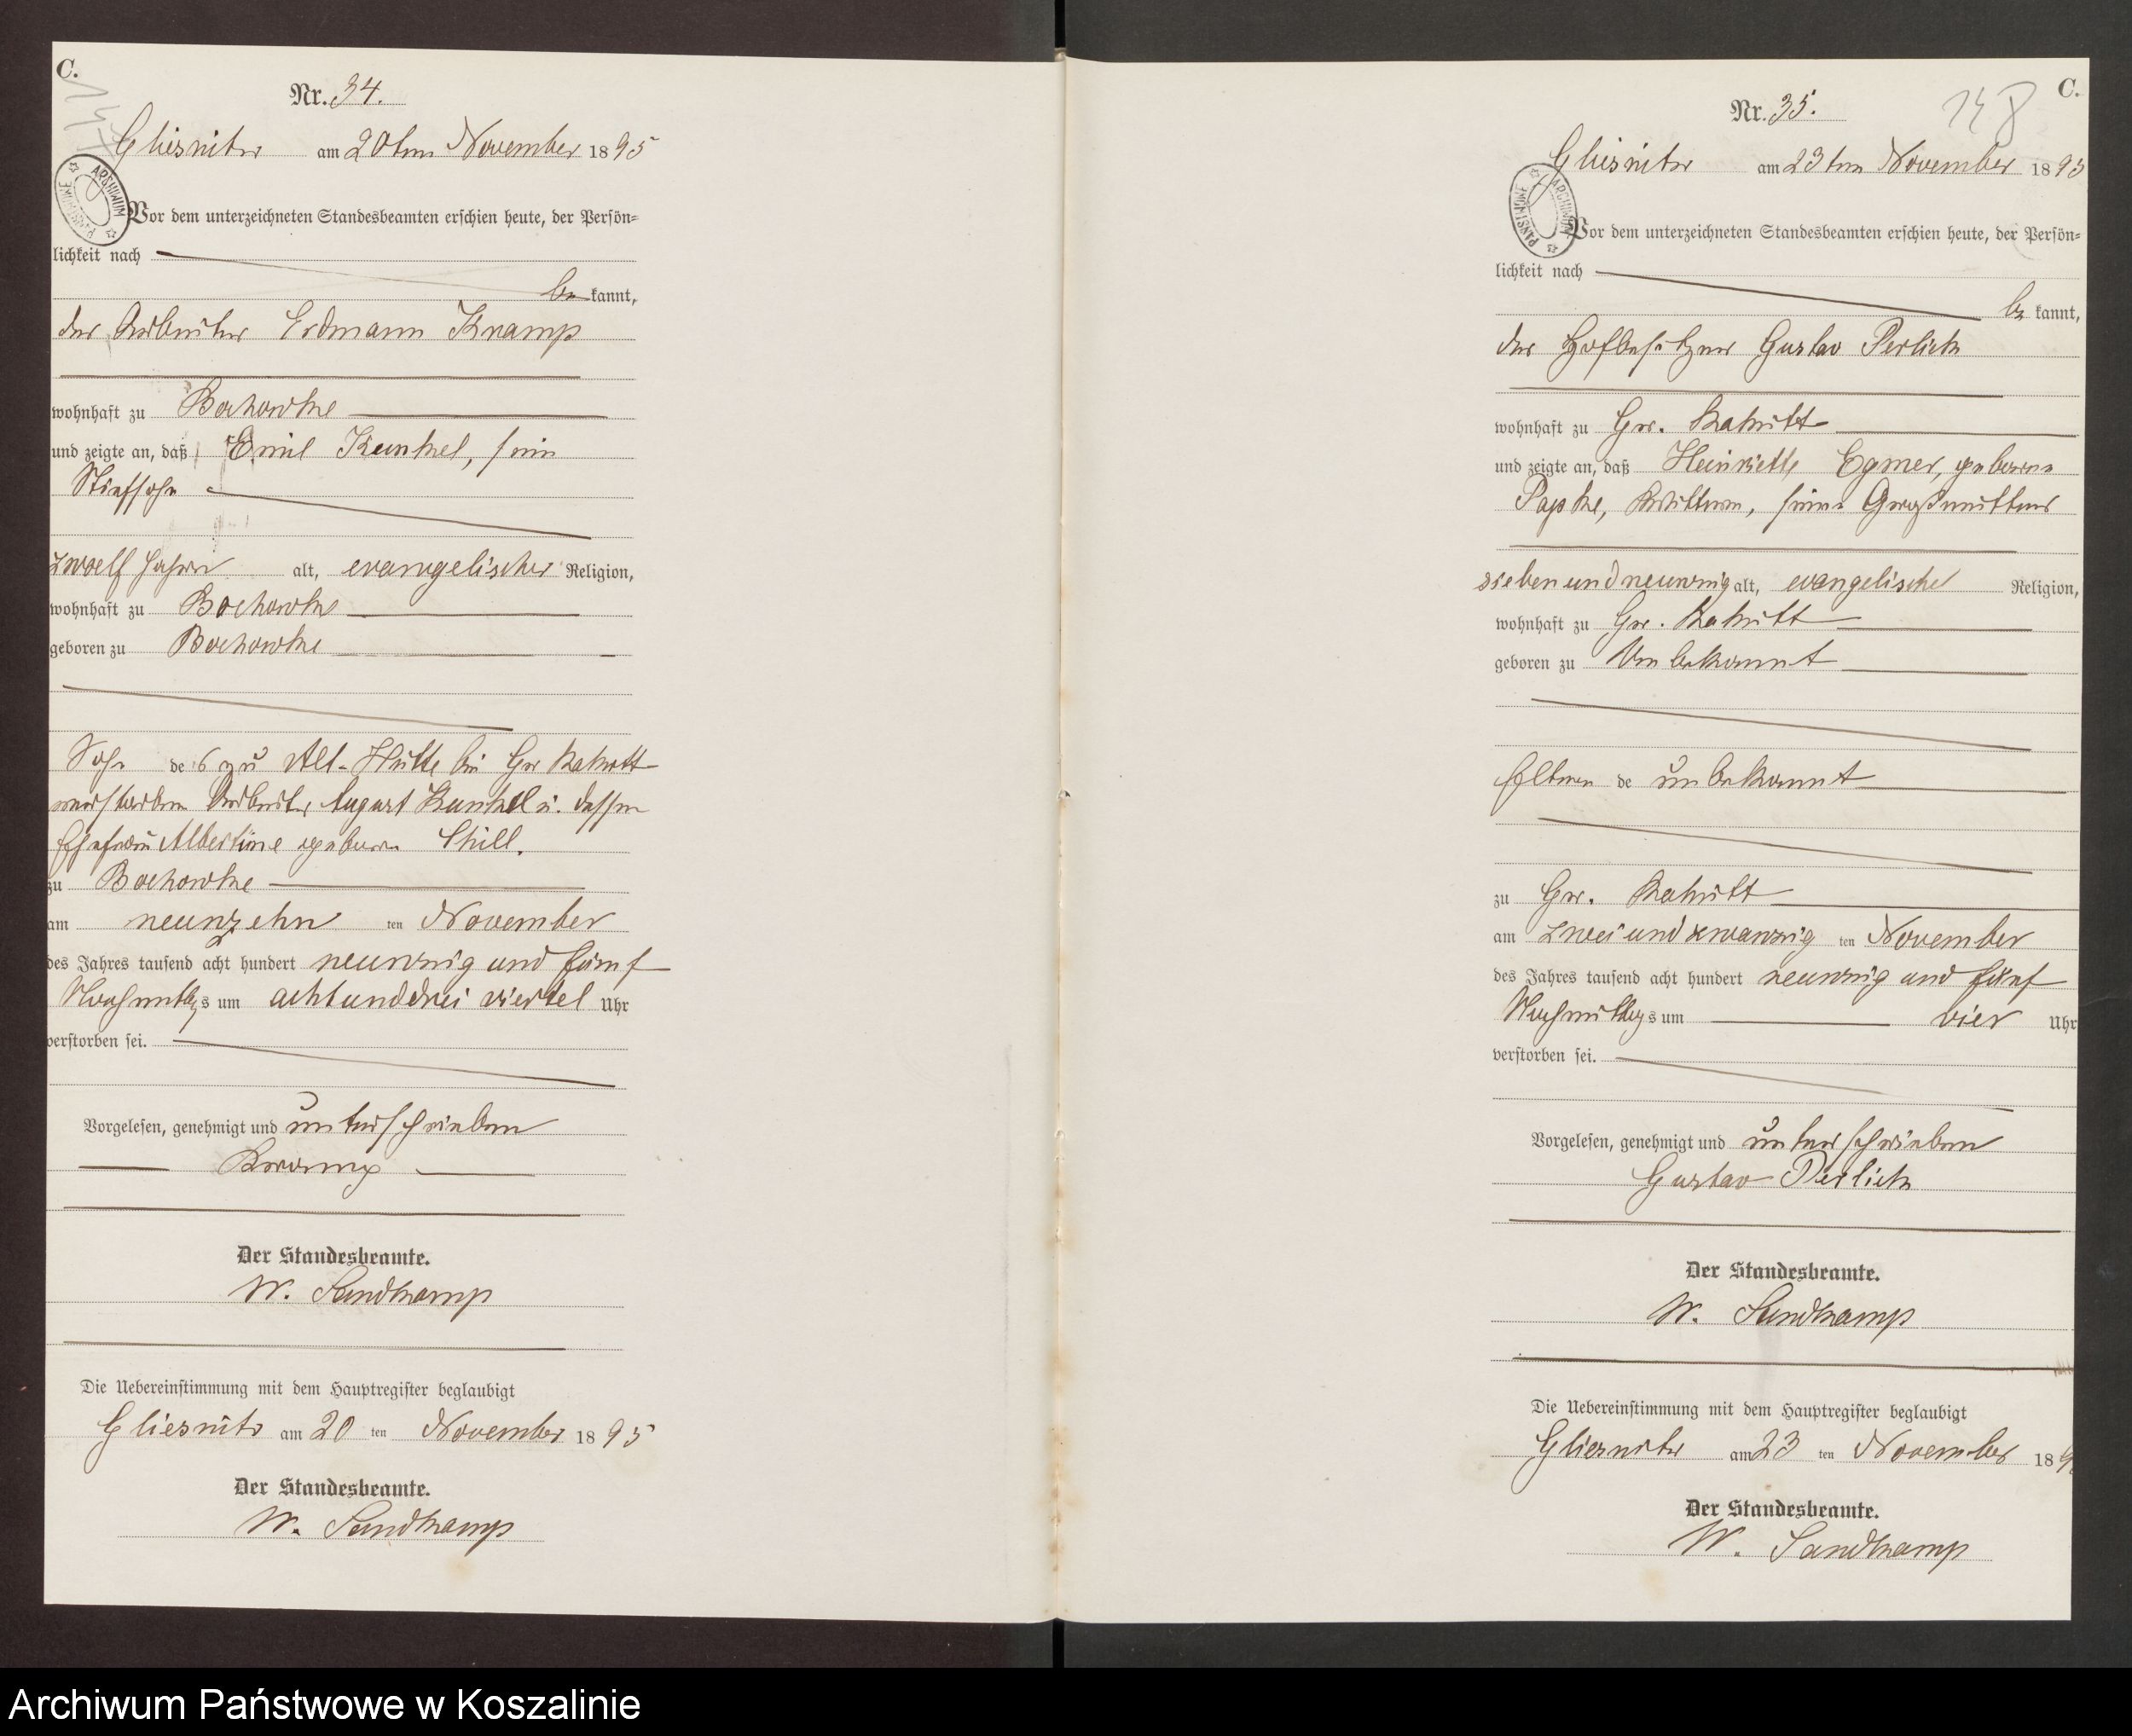 C.
Nr. 34.
Gliesnitz am 20ten November 1895
ARCHIWUM PAŃSTWOWE
Vor dem unterzeichneten Standesbeamten erschien heute, der Persön-
lichkeit nach
be kannt,
der Arbeiter Erdmann Kramp
wohnhaft zu Bochowke
und zeigte an, daß Emil Kunkel, sein
Stiefsohn
zwoelf Jahre alt, evangelischer Religion,
wohnhaft zu Bochowke
geboren zu Bochowke
Sohn des zu Alt-Hütte bei Gr Rakitt
verstorben Arbeiter August Kunkel u. dessen
Ehefrau Albertine geborene
zu Bochowke
am neunzehn ten November
des Jahres tausend acht hundert neunzig und fünf
Nachmittags um acht und drei viertel Uhr
verstorben sei.
Vorgelesen, genehmigt und unterschrieben
Kramp
Der Standesbeamte.
W. Sandkamp
Die Uebereinstimmung mit dem Hauptregister beglaubigt
Gliesnitz am 20 ten November 1895
Der Standesbeamte.
W. Sandkamp
C.
148
Nr. 35.
Gliesnitz am 23ten November 1895
ARCHIWUM PAŃSTWOWE
Vor dem unterzeichneten Standesbeamten erschien heute, der Persön-
lichkeit nach
be kannt,
der Hofbesitzer Gustav Perlick
wohnhaft zu Gr. Rakitt
und zeigte an, daß Heinriette Egmer, geborene
Papke, Wittwe, seine Großmutter
sieben und neunzig alt, evangelische Religion,
wohnhaft zu Gr. Rakitt
geboren zu Unbekannt
Eltern de unbekannt
zu Gr. Rakitt
am zwei und zwanzig ten November
des Jahres tausend acht hundert neunzig und fünf
Nachmittags um vier Uhr
verstorben sei.
Vorgelesen, genehmigt und unterschrieben
Gustav Perlick
Der Standesbeamte.
W. Sandkamp
Die Uebereinstimmung mit dem Hauptregister beglaubigt
Gliesnitz am 23 ten November 189
Der Standesbeamte.
W. Sandkamp
Archiwum Państwowe w Koszalinie